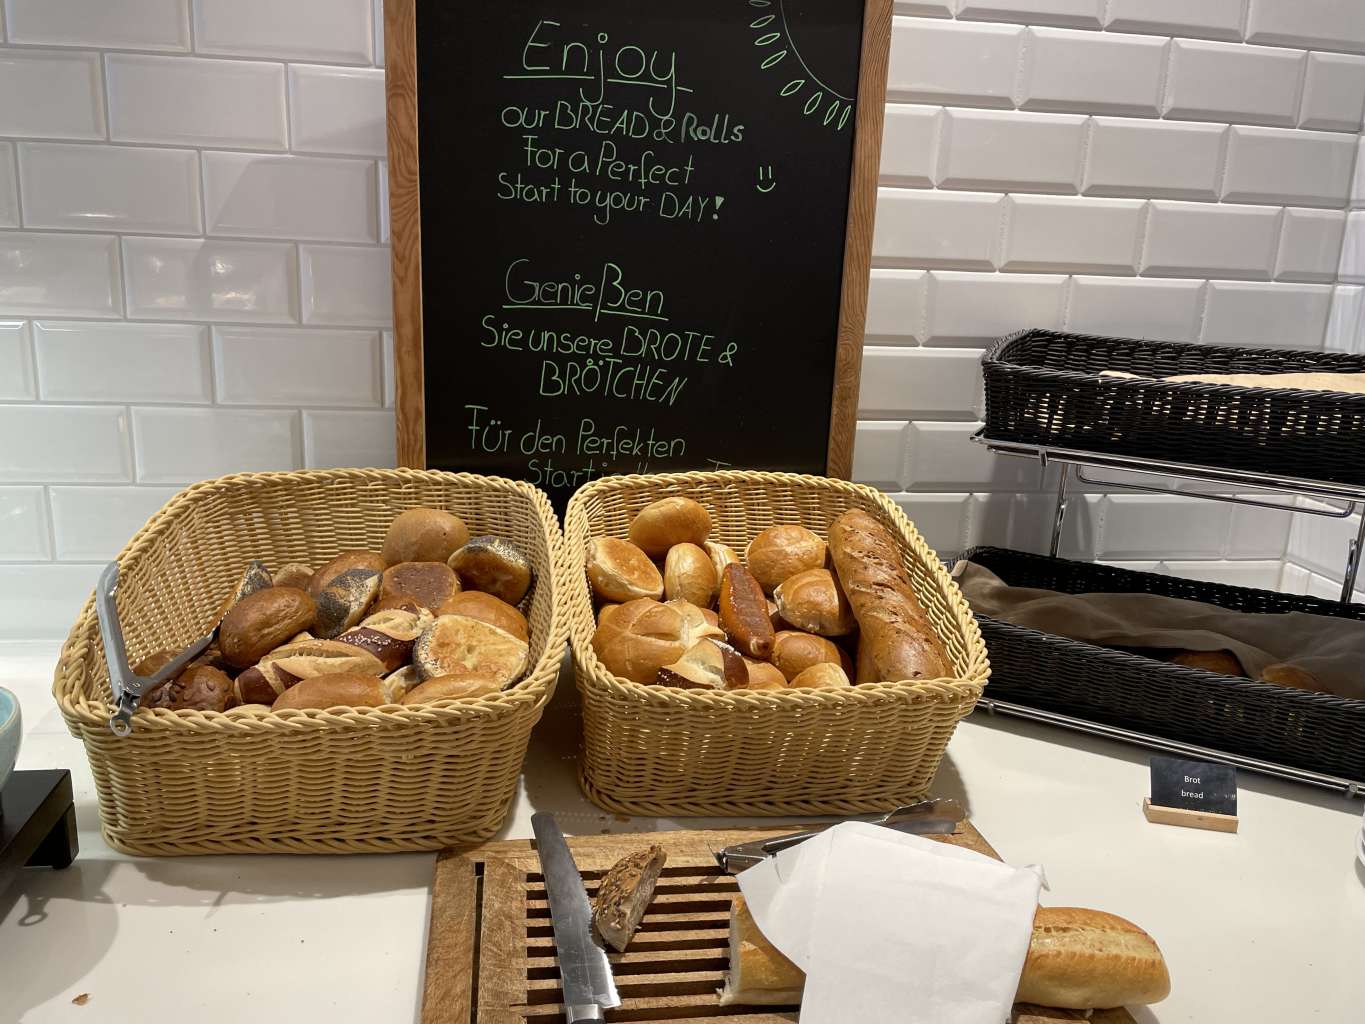 Enjoy
our BREAD & Rolls
For a Perfect
Start to your DAY!
Genießen
Sie unsere BROTE &
BRÖTCHEN
Für den Perfekten
Start
Brot
bread